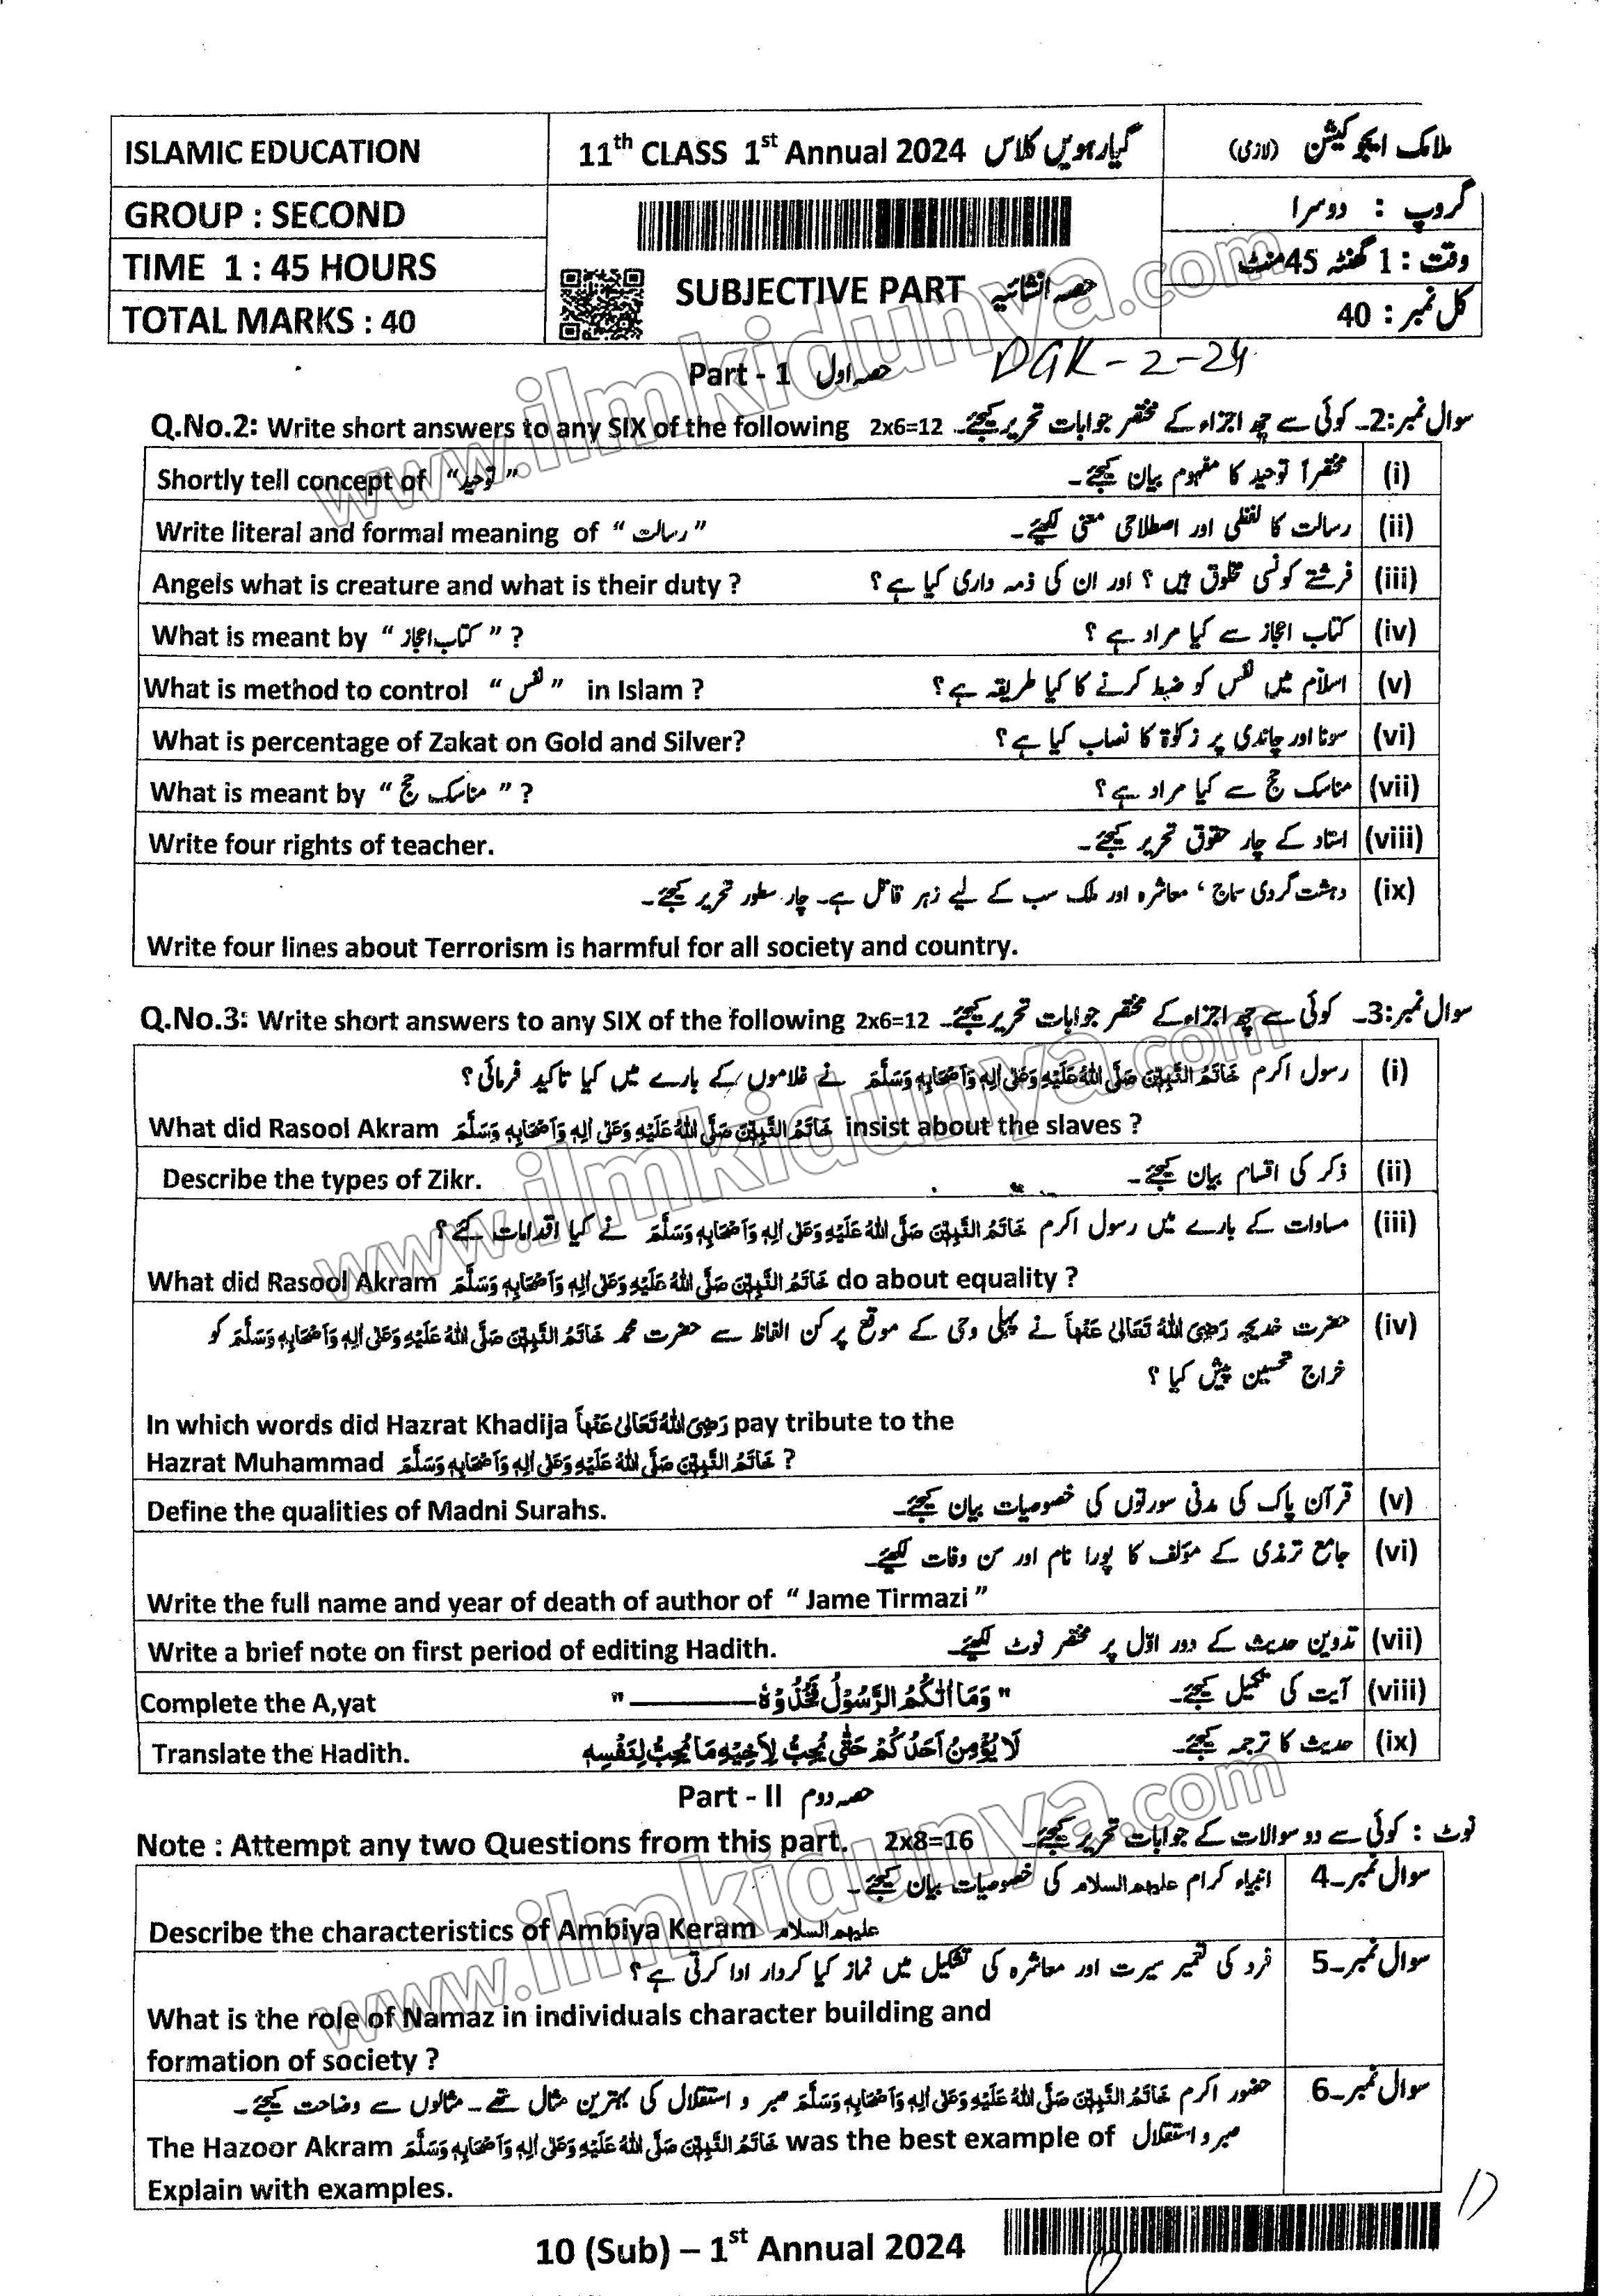 ISLAMIC EDUCATION
11th CLASS 1st Annual 2024 گیارہویں کلاس
اسلامک ایجوکیشن (لازمی)
GROUP : SECOND
گروپ : دوسرا
TIME 1 : 45 HOURS
وقت : 1 گھنٹہ 45 منٹ
SUBJECTIVE PART حصہ انشائیہ
TOTAL MARKS : 40
کل نمبر : 40
Part - 1 حصہ اول
DGK-2-24
Q.No.2: Write short answers to any SIX of the following 2x6=12 سوال نمبر:2۔ کوئی سے چھ اجزاء کے مختصر جوابات تحریر کیجئے۔
Shortly tell concept of “توحید” مختصراً توحید کا مفہوم بیان کیجئے۔ (i)
Write literal and formal meaning of “رسالت” رسالت کا لفظی اور اصطلاحی معنی لکھیئے۔ (ii)
Angels what is creature and what is their duty ? فرشتے کونسی مخلوق ہیں ؟ اور ان کی ذمہ داری کیا ہے ؟ (iii)
What is meant by “کتاب اعجاز” ? کتاب اعجاز سے کیا مراد ہے ؟ (iv)
What is method to control “نفس” in Islam ? اسلام میں نفس کو ضبط کرنے کا کیا طریقہ ہے ؟ (v)
What is percentage of Zakat on Gold and Silver? سونا اور چاندی پر زکوٰۃ کا نصاب کیا ہے ؟ (vi)
What is meant by “مناسک حج” ? مناسک حج سے کیا مراد ہے ؟ (vii)
Write four rights of teacher. استاد کے چار حقوق تحریر کیجئے۔ (viii)
دہشت گردی سماج ، معاشرہ اور ملک سب کے لیے زہر قاتل ہے۔ چار سطور تحریر کیجئے۔ (ix)
Write four lines about Terrorism is harmful for all society and country.
Q.No.3: Write short answers to any SIX of the following 2x6=12 سوال نمبر:3۔ کوئی سے چھ اجزاء کے مختصر جوابات تحریر کیجئے۔
رسول اکرم خَاتَمُ النَّبِیّٖنَ صَلَّی اللّٰہُ عَلَیْہِ وَعَلٰی اٰلِہٖ وَاَصْحَابِہٖ وَسَلَّمَ نے غلاموں کے بارے میں کیا تاکید فرمائی ؟ (i)
What did Rasool Akram خَاتَمُ النَّبِیّٖنَ صَلَّی اللّٰہُ عَلَیْہِ وَعَلٰی اٰلِہٖ وَاَصْحَابِہٖ وَسَلَّمَ insist about the slaves ?
Describe the types of Zikr. ذکر کی اقسام بیان کیجئے۔ (ii)
مساوات کے بارے میں رسول اکرم خَاتَمُ النَّبِیّٖنَ صَلَّی اللّٰہُ عَلَیْہِ وَعَلٰی اٰلِہٖ وَاَصْحَابِہٖ وَسَلَّمَ نے کیا اقدامات کئے ؟ (iii)
What did Rasool Akram خَاتَمُ النَّبِیّٖنَ صَلَّی اللّٰہُ عَلَیْہِ وَعَلٰی اٰلِہٖ وَاَصْحَابِہٖ وَسَلَّمَ do about equality ?
حضرت خدیجہ رَضِیَ اللّٰہُ تَعَالٰی عَنْہَا نے پہلی وحی کے موقع پر کن الفاظ سے حضرت محمد خَاتَمُ النَّبِیّٖنَ صَلَّی اللّٰہُ عَلَیْہِ وَعَلٰی اٰلِہٖ وَاَصْحَابِہٖ وَسَلَّمَ کو (iv)
خراج تحسین پیش کیا ؟
In which words did Hazrat Khadija رَضِیَ اللّٰہُ تَعَالٰی عَنْہَا pay tribute to the
Hazrat Muhammad خَاتَمُ النَّبِیّٖنَ صَلَّی اللّٰہُ عَلَیْہِ وَعَلٰی اٰلِہٖ وَاَصْحَابِہٖ وَسَلَّمَ ?
Define the qualities of Madni Surahs. قرآن پاک کی مدنی سورتوں کی خصوصیات بیان کیجئے۔ (v)
جامع ترمذی کے مؤلف کا پورا نام اور سن وفات لکھیئے۔ (vi)
Write the full name and year of death of author of “ Jame Tirmazi ”
Write a brief note on first period of editing Hadith. تدوین حدیث کے دور اوّل پر مختصر نوٹ لکھیئے۔ (vii)
Complete the A,yat "وَمَا اٰتٰکُمُ الرَّسُوْلُ فَخُذُوْہُ ————" آیت کی تکمیل کیجئے۔ (viii)
Translate the Hadith. لَا یُؤْمِنُ اَحَدُکُمْ حَتّٰی یُحِبَّ لِاَخِیْہِ مَا یُحِبُّ لِنَفْسِہٖ حدیث کا ترجمہ کیجئے۔ (ix)
Part - II حصہ دوم
Note : Attempt any two Questions from this part. 2x8=16 نوٹ : کوئی سے دو سوالات کے جوابات تحریر کیجئے۔
انبیاء کرام علیہم السلام کی خصوصیات بیان کیجئے۔ سوال نمبر۔4
Describe the characteristics of Ambiya Keram علیہم السلام
فرد کی تعمیر سیرت اور معاشرہ کی تشکیل میں نماز کیا کردار ادا کرتی ہے ؟ سوال نمبر۔5
What is the role of Namaz in individuals character building and
formation of society ?
حضور اکرم خَاتَمُ النَّبِیّٖنَ صَلَّی اللّٰہُ عَلَیْہِ وَعَلٰی اٰلِہٖ وَاَصْحَابِہٖ وَسَلَّمَ صبر و استقلال کی بہترین مثال تھے۔ مثالوں سے وضاحت کیجئے۔ سوال نمبر۔6
The Hazoor Akram خَاتَمُ النَّبِیّٖنَ صَلَّی اللّٰہُ عَلَیْہِ وَعَلٰی اٰلِہٖ وَاَصْحَابِہٖ وَسَلَّمَ was the best example of صبر و استقلال
Explain with examples.
10 (Sub) – 1st Annual 2024
www.ilmkidunya.com
www.ilmkidunya.com
www.ilmkidunya.com